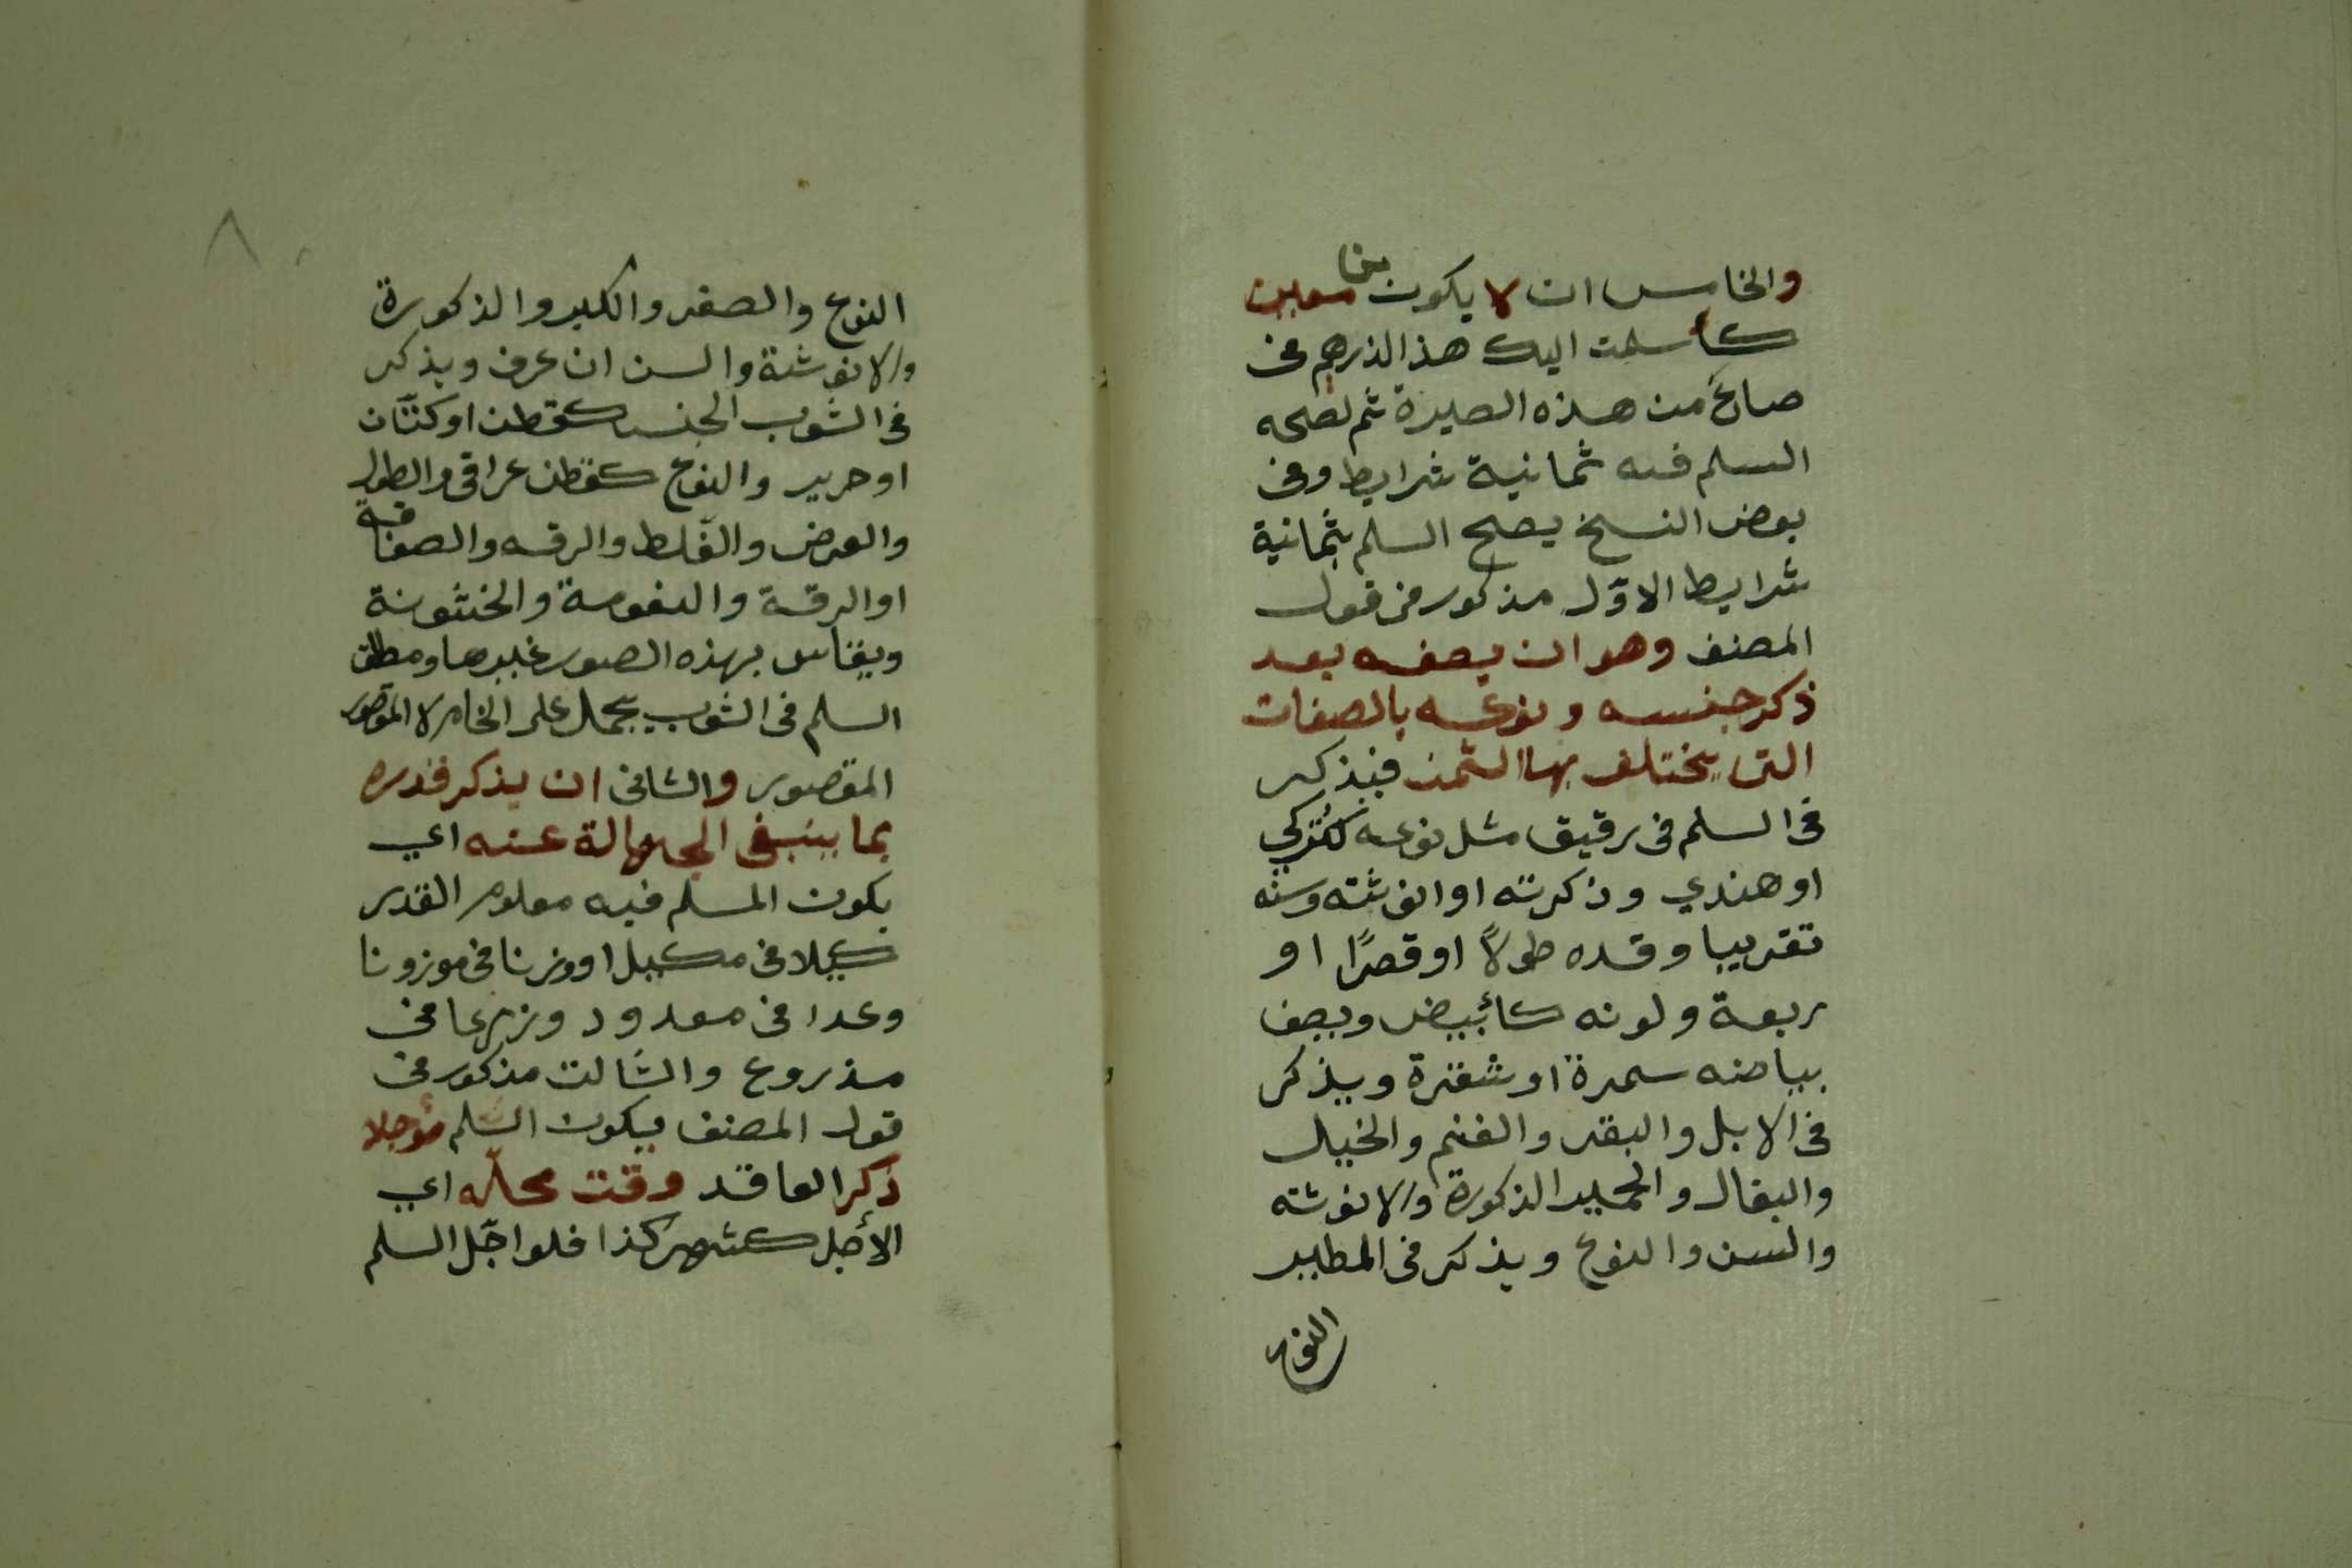 والخامس ان لا يكون من معين
كأسلمت اليك هذا الدرهم في
صاع من هذه الصبرة ثم لصحه
السلم فيه ثمانية شرايط وفي
بعض النسخ يصح السلم بثمانية
شرايط الاوّل مذكور في قول
المصنف وهو ان يصفه بعد
ذكر جنسه ونوعه بالصفات
التي يختلف بها الثمن فيذكر
في السلم في رقيق مثل نوعه كتركي
او هندي وذكرته او انوثته وسنه
تقريبا وقده طولاً او قصرًا او
ربعة ولونه كأبيض ويصف
بياضه سمرة او شقرة ويذكر
في الابل والبقر والغنم والخيل
والبغال والحمير الذكورة والانوثه
والسن والنوع ويذكر في الطير
النوع
٨٠
النوع والصغر والكبر والذكورة
والانوثة والسن ان عرف ويذكر
في الثوب الجنس كقطن او كتّان
او حرير والنوع كقطن عراقي والطول
والعرض والغلظ والرقه والصفاقة
او الرقة والنعومة والخشونة
ويقاس بهذه الصور غيرها ومطلق
السلم في الثوب يحمل على الخام لا المقصور
المقصور والثاني ان يذكر قدره
بما ينبفي الجهالة عنه اي
يكون المسلم فيه معلوم القدر
كيلا في مكيل او وزنا في موزونا
وعدا في معدود وزرعا في
مذروع والثالث مذكور في
قول المصنف ويكون السلم مؤجلا
ذكر العاقد وقت محلّه اي
الأجل كشهر كذا فلو اجّل السلم